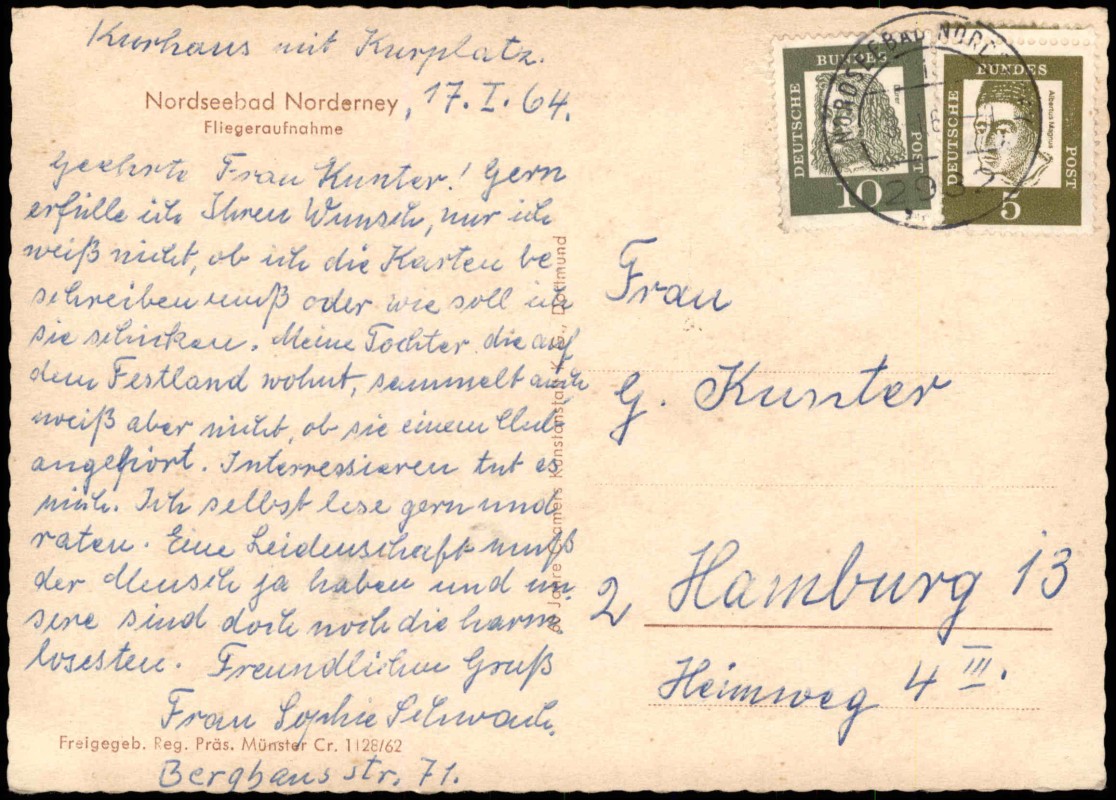 Kurhaus mit Kurplatz.
Nordseebad Norderney
, 17. I. 64.
Fliegeraufnahme
Geehrte Frau Kunter! Gern
erfülle ich Ihren Wunsch, nur ich
weiß nicht, ob ich die Karten be
schreiben muß oder wie soll ich
sie schicken. Meine Tochter die auf
dem Festland wohnt, sammelt auch
weiß aber nicht, ob sie einem Club
angehört. Interressieren tut es
mich. Ich selbst lese gern und
raten. Eine Leidenschaft muß
der Mensch ja haben und un
sere sind doch noch die harm
losesten. Freundlichen Gruß
Frau Sophie Schwach.
Freigegeb. Reg. Präs. Münster Cr. 1128/62
Berghausstr. 71.
Jahre Cramers Kunstanstalt K.G., Dortmund
DEUTSCHE
BUNDES
POST
10
DEUTSCHE
BUNDES
POST
Albertus Magnus
5
NORDSEEBAD NORDERNEY
2982
Frau
G. Kunter
2 Hamburg 13
Heimweg 4 III.